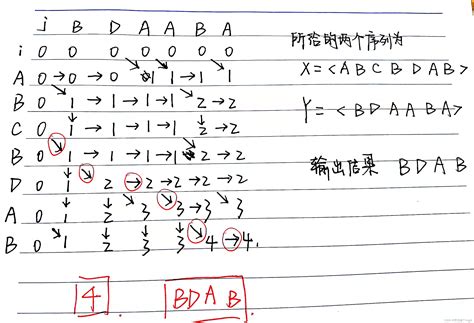 j B D A A B A
i 0 0 0 0 0 0 0
A 0 → 0 → 0 ↘ 1 ↘ 1 → 1 ↘ 1
B 0 ↘ 1 → 1 → 1 → 1 ↘ 2 → 2
C 0 ↓ 1 → 1 → 1 → 1 ↓ 2 → 2
B 0 ↘ 1 → 1 → 1 → 1 ↘ 2 → 2
D 0 ↓ 1 ↘ 2 → 2 → 2 → 2 → 2
A 0 ↓ 1 ↓ 2 ↘ 3 ↘ 3 → 3 ↘ 3
B 0 ↘ 1 ↓ 2 ↓ 3 ↓ 3 ↘ 4 → 4.
4 BDAB
所给的两个序列为
X=<ABCBDAB>
Y=<BDAABA>
输出结果 BDAB